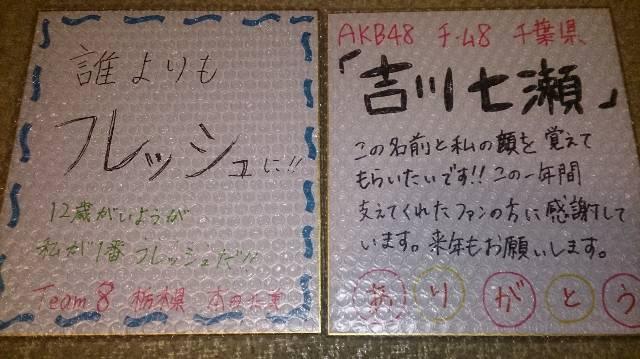 誰よりも
フレッシュに!!
12歳がいようが
私が1番フレッシュだ!?
Team 8 栃木県 本田仁美
AKB48 チーム8 千葉県
「吉川七瀬」
この名前と私の顔を覚えて
もらいたいです!! この一年間
支えてくれたファンの方に感謝して
います。来年もお願いします。
ありがとう